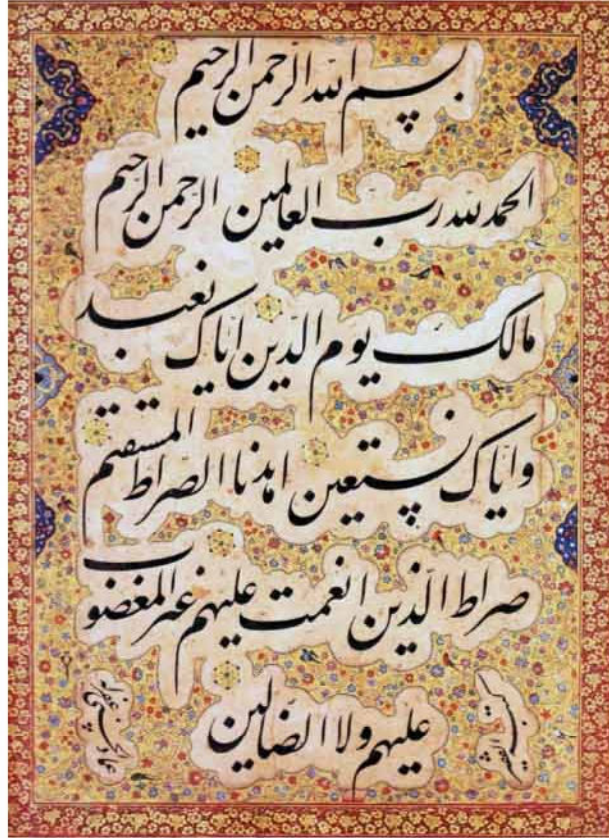 بسم الله الرحمن الرحيم
الحمد لله رب العالمين الرحمن الرحيم
مالك يوم الدّين ايّاك نعبد
وايّاك نستعين اهدنا الصّراط المستقيم
صراط الّذين انعمت عليهم غير المغضوب
عليهم ولا الضّالّين